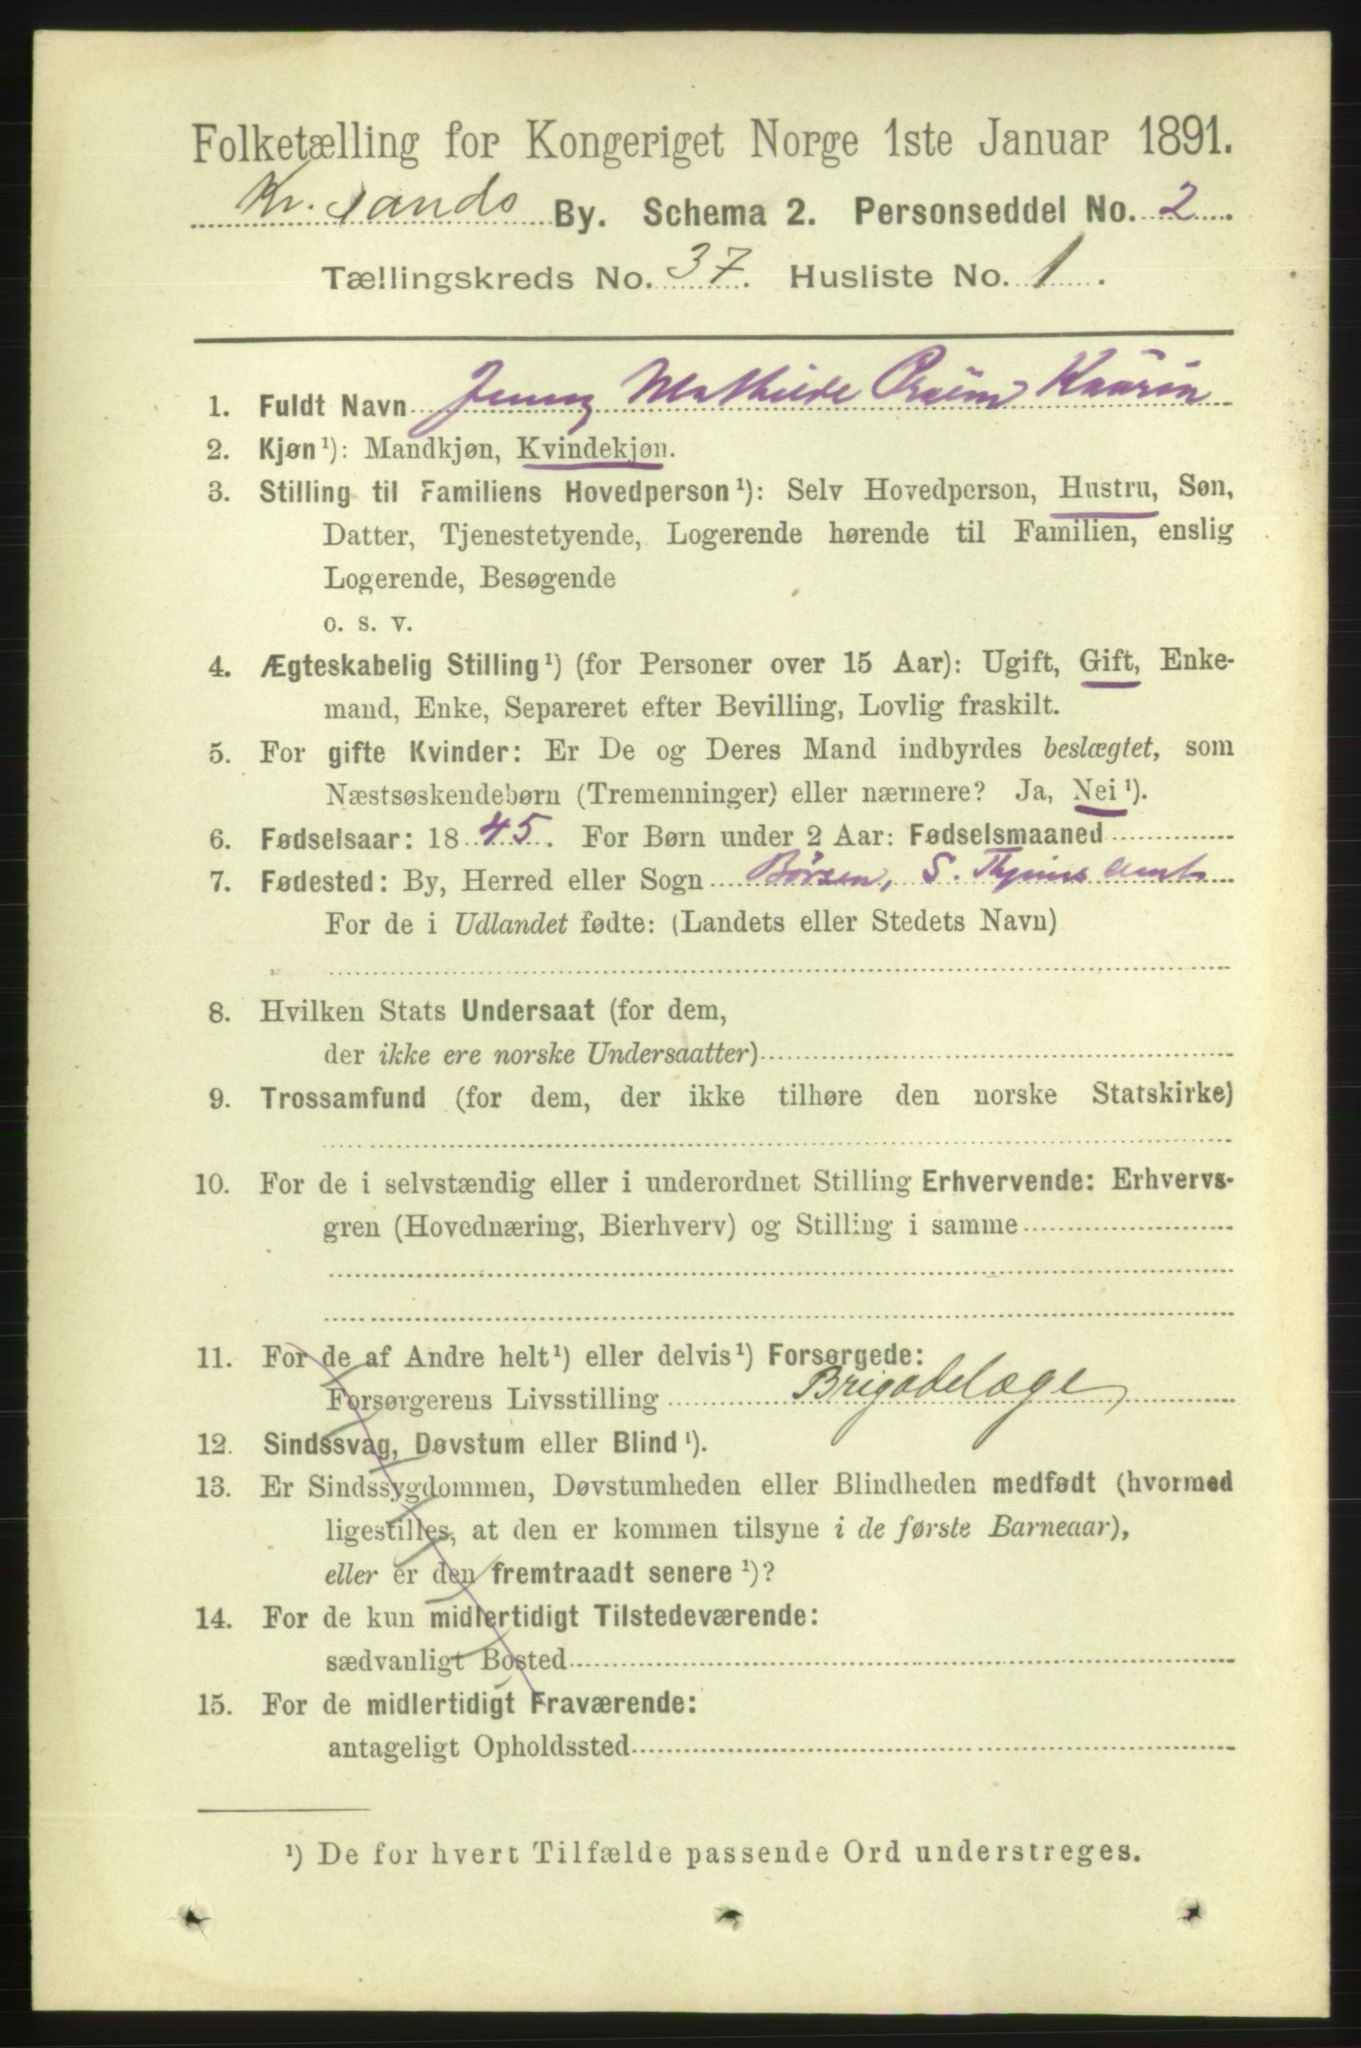 Folketælling for Kongeriget Norge 1ste Januar 1891.
Kr. sands By. Schema 2. Personseddel No. 2
Tællingskreds No. 37. Husliste No. 1.
1. Fuldt Navn Jenny Mathilde Kaurin
2. Kjøn¹): Mandkjøn, Kvindekjøn.
3. Stilling til Familiens Hovedperson¹): Selv Hovedperson, Hustru, Søn,
Datter, Tjenestetyende, Logerende hørende til Familien, enslig
Logerende, Besøgende
o. s. v.
4. Ægteskabelig Stilling¹) (for Personer over 15 Aar): Ugift, Gift, Enke-
mand, Enke, Separeret efter Bevilling, Lovlig fraskilt.
5. For gifte Kvinder: Er De og Deres Mand indbyrdes beslægtet, som
Næstsøskendebørn (Tremenninger) eller nærmere? Ja, Nei¹).
6. Fødselsaar: 1845. For Børn under 2 Aar: Fødselsmaaned
7. Fødested: By, Herred eller Sogn Børsen, S. Thjems Amt
For de i Udlandet fødte: (Landets eller Stedets Navn)
8. Hvilken Stats Undersaat (for dem,
der ikke ere norske Undersaatter)
9. Trossamfund (for dem, der ikke tilhøre den norske Statskirke)
10. For de i selvstændig eller i underordnet Stilling Erhvervende: Erhvervs-
gren (Hovednæring, Bierhverv) og Stilling i samme
11. For de af Andre helt¹) eller delvis¹) Forsørgede:
Forsørgerens Livsstilling Brigadelæge
12. Sindssvag, Døvstum eller Blind¹).
13. Er Sindssygdommen, Døvstumheden eller Blindheden medfødt (hvormed
ligestilles, at den er kommen tilsyne i de første Barneaar),
eller er den fremtraadt senere¹)?
14. For de kun midlertidigt Tilstedeværende:
sædvanligt Bosted
15. For de midlertidigt Fraværende:
antageligt Opholdssted
¹) De for hvert Tilfælde passende Ord understreges.